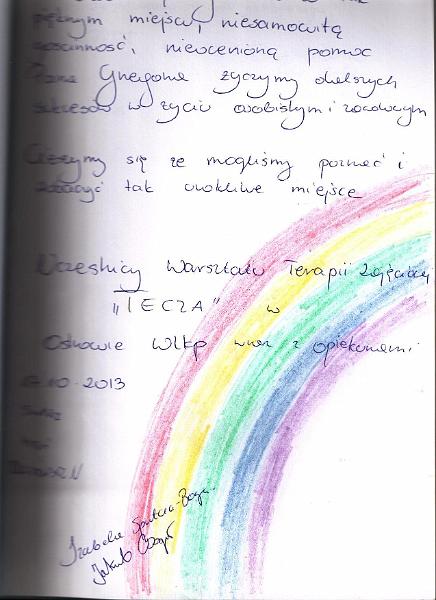 pięknym miejscu, niesamowitą
gościnność, nieocenioną pomoc
Panie Grzegorzu życzymy dalszych
sukcesów w życiu osobistym i zawodowym
Cieszymy się że mogliśmy poznać i
zobaczyć tak urokliwe miejsce
Uczestnicy Warsztatu Terapii Zajęciowej
"TĘCZA" w
Ostrowie Wlkp wraz z opiekunami
17.10.2013
Izabela
Jakub